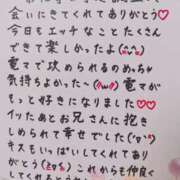 会いにきてくれてありがとう♡
今日もエッチなことたくさん
できて楽しかったよ(^^)
電マで攻められるのめっちゃ
気持ちよかった〜(ᵔᴗᵔ)電マが
もっと好きになりました♡
イッたあとお兄さんに抱き
しめられて幸せでした(°▽°)
キスもいっぱいしてくれてあり
がとう(≧▽≦)これからも仲良く
してくれるとうれ